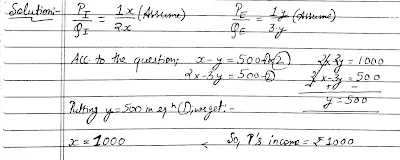 Solution:-
P_I/Q_I = 1x/2x (Assume) P_E/Q_E = 1y/3y (Assume)
Acc to the question; x-y = 500-①×2 2x-2y = 1000
2x-3y = 500-② 2x-3y = 500
- + -
y = 500
Putting y = 500 in eqⁿ (1), we get:-
x = 1000 So, P's income = ₹1000